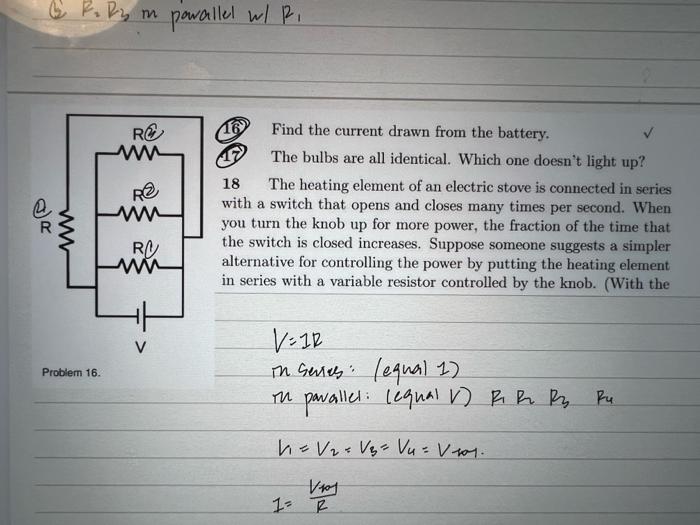 R₂ R₃ in parallel w/ R₁
R③
R②
R①
④
R
V
Problem 16.
16 Find the current drawn from the battery. ✓
17 The bulbs are all identical. Which one doesn't light up?
18 The heating element of an electric stove is connected in series
with a switch that opens and closes many times per second. When
you turn the knob up for more power, the fraction of the time that
the switch is closed increases. Suppose someone suggests a simpler
alternative for controlling the power by putting the heating element
in series with a variable resistor controlled by the knob. (With the
V=IR
in series: (equal I)
in parallel: (equal V) R₁ R₂ R₃ R₄
V₁ = V₂ = V₃ = V₄ = V tot.
I = V tot / R